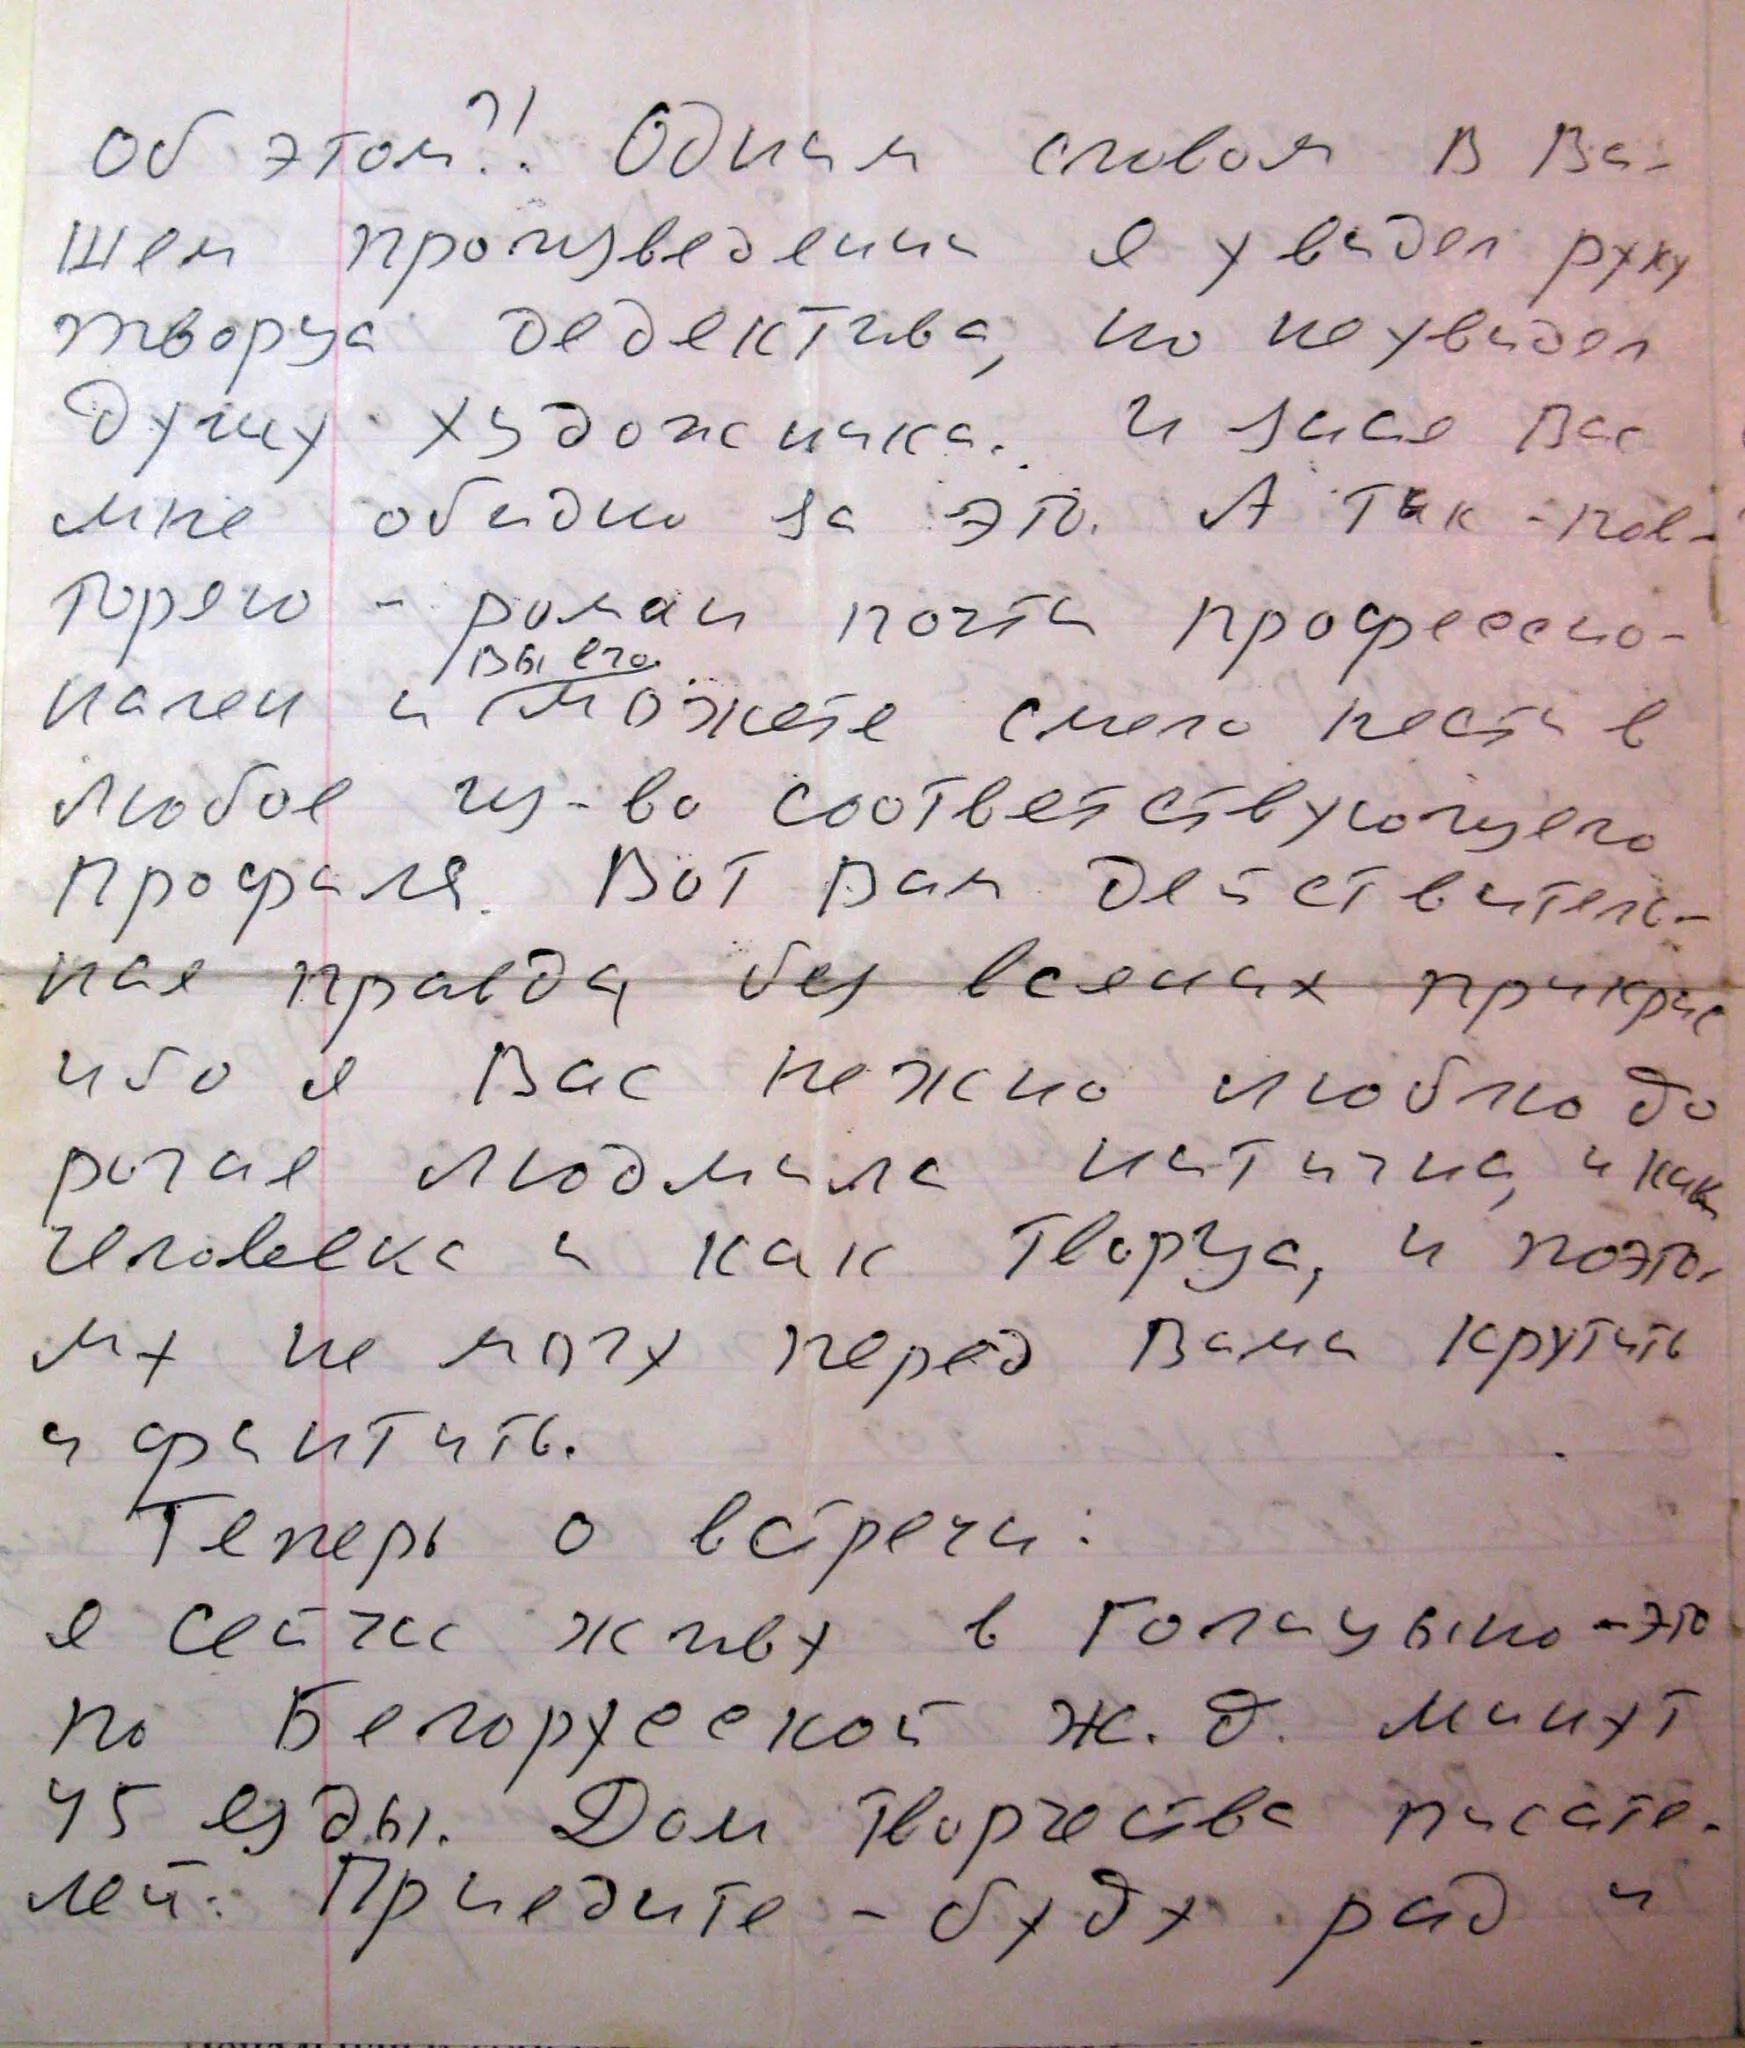 Об этом?! Одним словом в Ва-
шем произведении я увидел руку
творца дедектива, но не увидел
душу художника. И зная Вас
мне обидно за это. А так - пов-
торяю - роман почти профессио-
нален и вы его можете смело нести в
любое из-во соответствующего
профиля. Вот Вам действитель-
ная правда, без всяких прикрас
ибо я Вас нежно люблю до
рогая Людмила, и как
человека и как творца, и поэто-
му не могу перед Вами крутить
и финтить.
Теперь о встречи:
я сейчас живу в Голицыно - это
по Белорусской ж.д. минут
45 езды. Дом творчества писате-
лей. Приедите - буду рад и